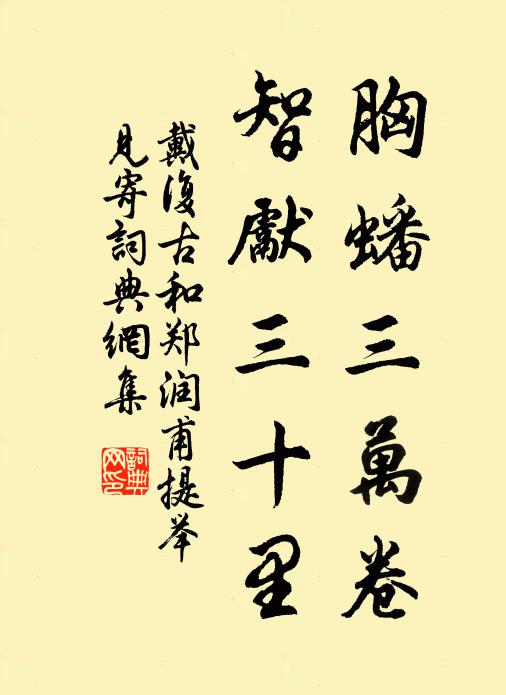 胸蟠三萬卷
智獻三十里
戴復古和郑润甫提举
見寄詞典網集
詞典
网印